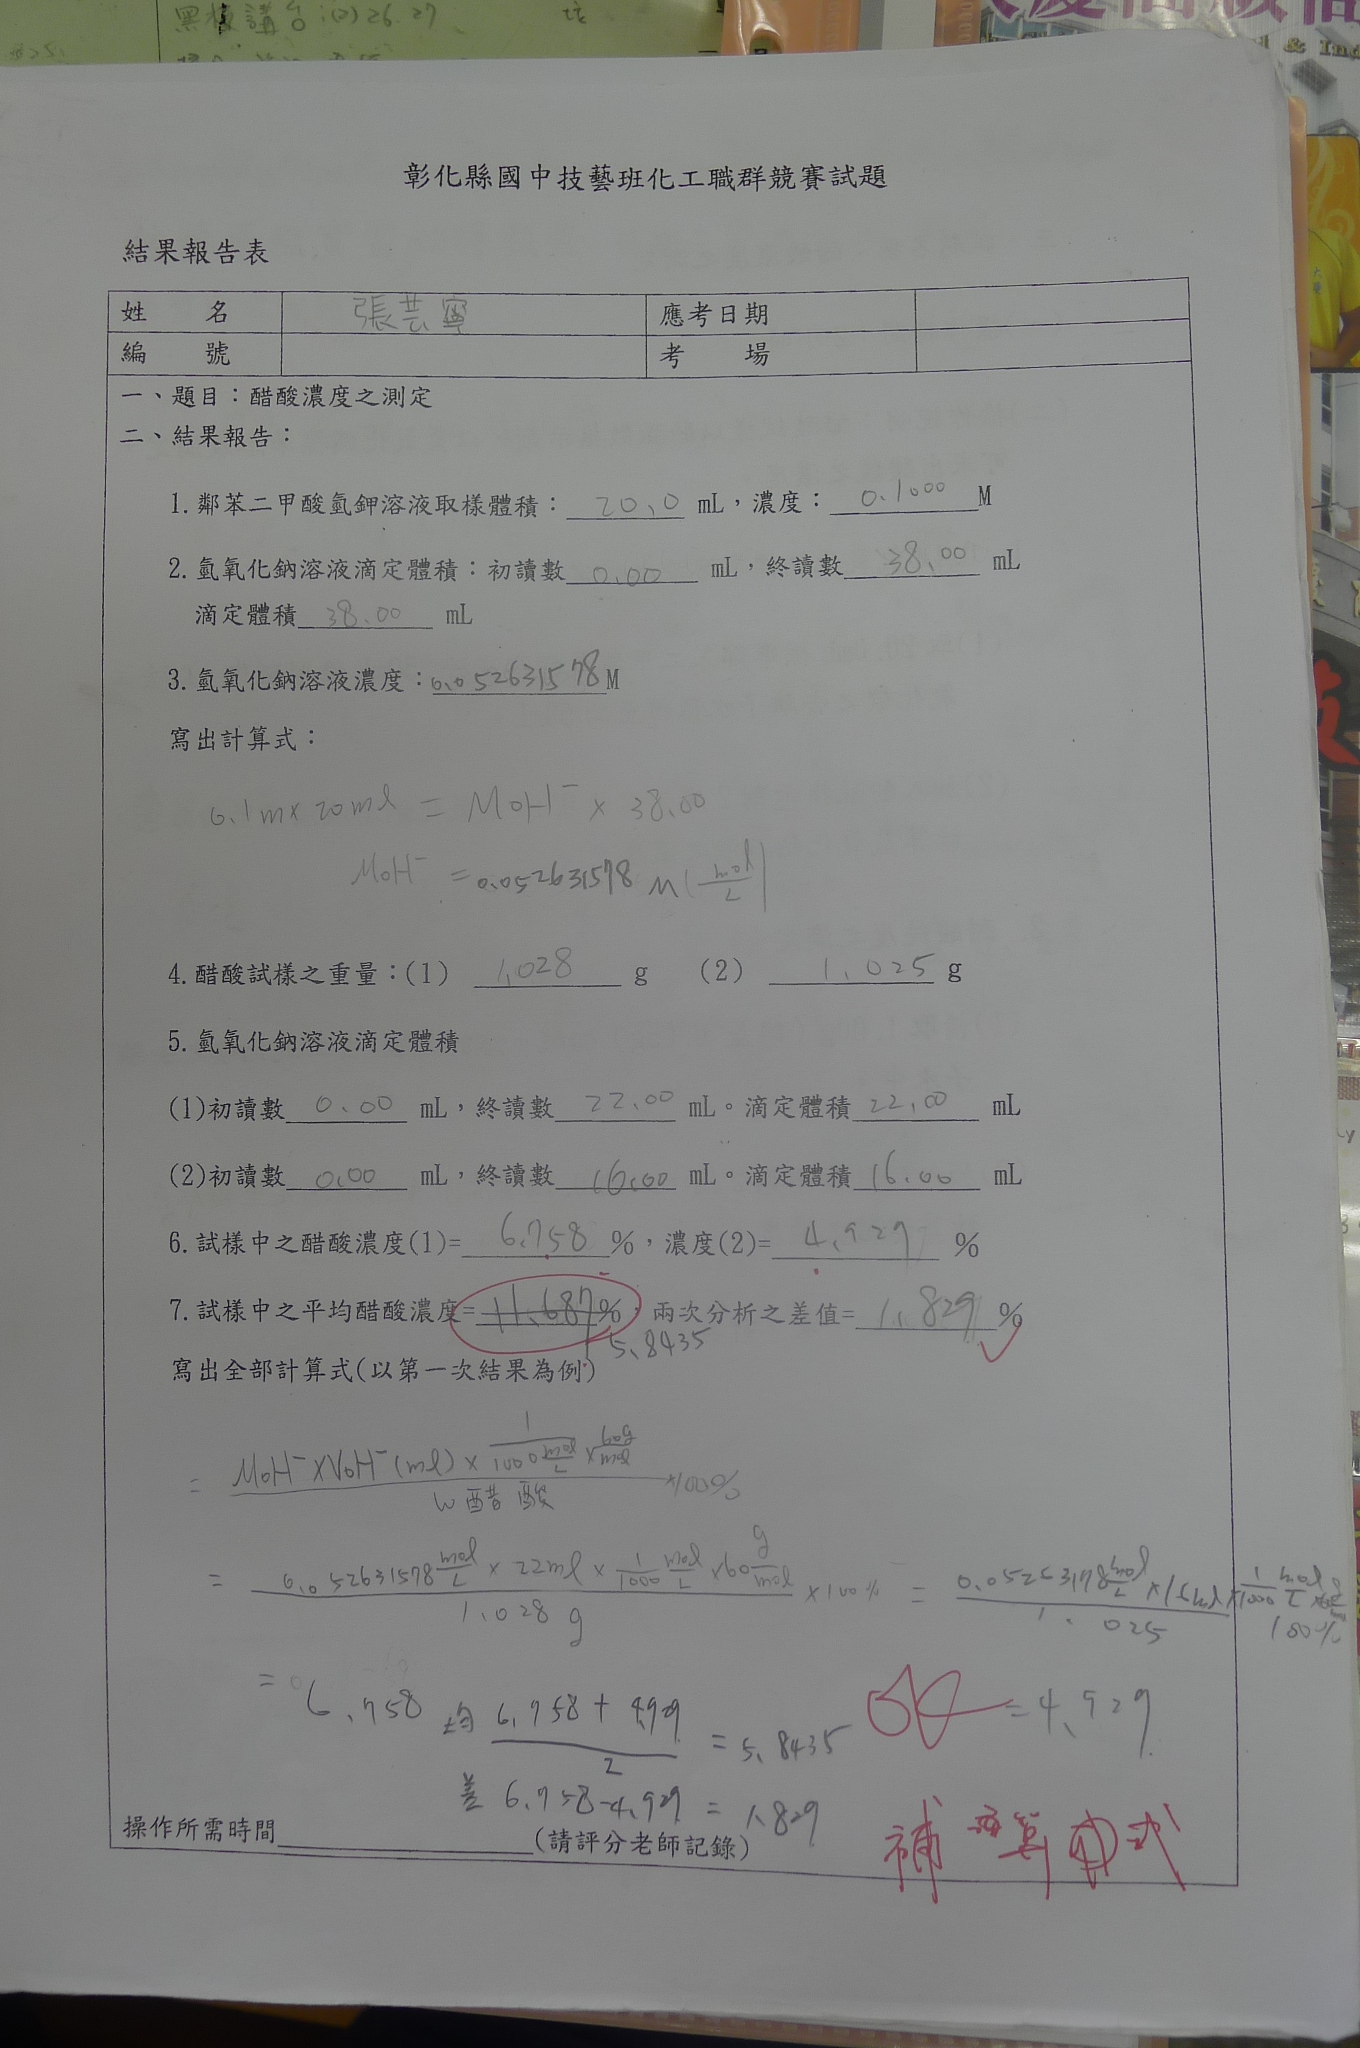 黑板講台:(2)26.27
& Ind
彰化縣國中技藝班化工職群競賽試題
結果報告表
姓 名 張芸寧 應考日期
編 號 考 場
一、題目:醋酸濃度之測定
二、結果報告:
1.鄰苯二甲酸氫鉀溶液取樣體積: 20.0 mL,濃度: 0.1000 M
2.氫氧化鈉溶液滴定體積:初讀數 0.00 mL,終讀數 38.00 mL
滴定體積 38.00 mL
3.氫氧化鈉溶液濃度:0.052631578 M
寫出計算式:
0.1m×20ml = MOH⁻ × 38.00
MOH⁻ = 0.052631578 M(mol/L)
4.醋酸試樣之重量:(1) 1.028 g (2) 1.025 g
5.氫氧化鈉溶液滴定體積
(1)初讀數 0.00 mL,終讀數 22.00 mL。滴定體積 22.00 mL
(2)初讀數 0.00 mL,終讀數 16.00 mL。滴定體積 16.00 mL
6.試樣中之醋酸濃度(1)= 6.758 %,濃度(2)= 4.929 %
7.試樣中之平均醋酸濃度= 11.687 %,兩次分析之差值= 1.829 %
5.8435
寫出全部計算式(以第一次結果為例)
= MOH⁻×VOH⁻(ml) × 1/1000 mol/L × 60g/mol / W醋酸 ×100%
= 0.052631578 mol/L × 22ml × 1/1000 mol/L ×60 g/mol / 1.028 g ×100% =
= 6.758
= 4.929
均 6.758 + 4.929 / 2 = 5.8435
差 6.758-4.929 = 1.829
操作所需時間 (請評分老師記錄)
補 算式